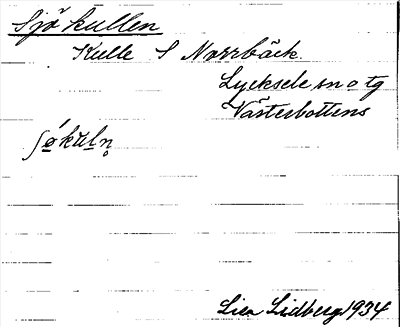 Sjökullen
Kulle S Norrbäck.
Lycksele sn o tg
Västerbottens
ʃǿkuln̥
Lisa Lidberg 1934